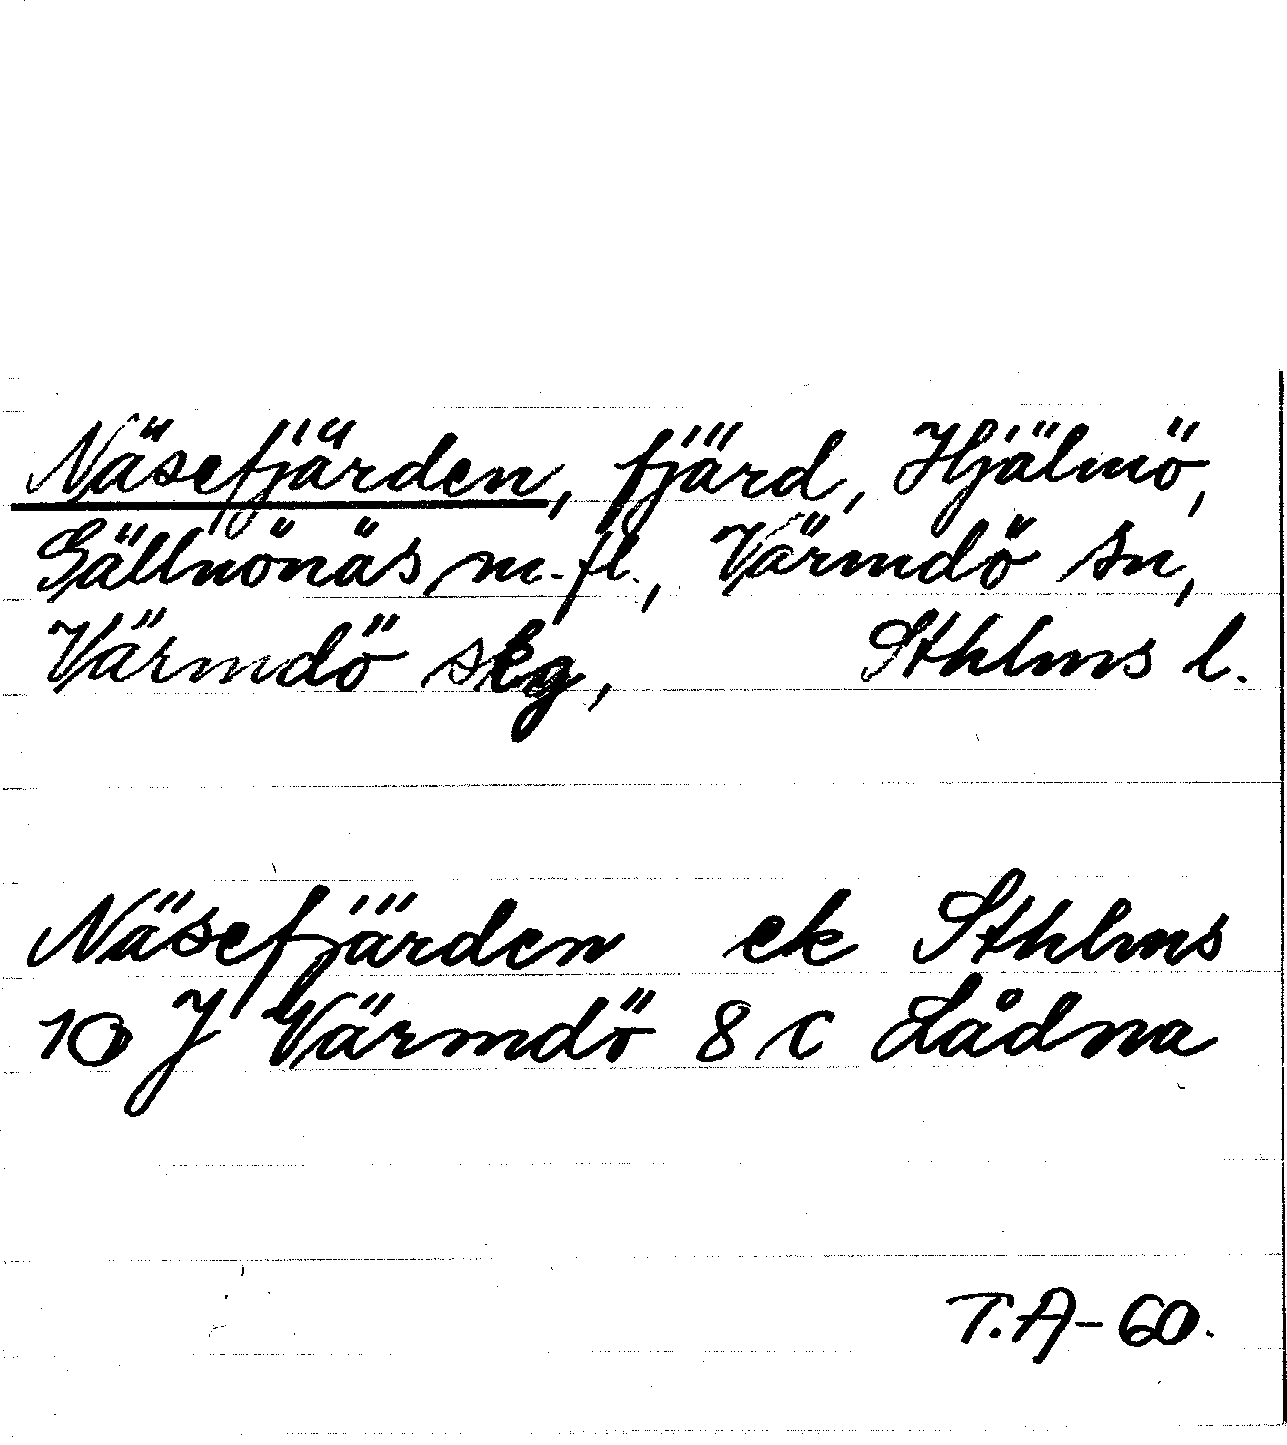 Näsefjärden, fjärd, Hjälmö,
Gällnönäs m.fl., Värmdö sn,
Värmdö skg, Sthlms l.
Näsefjärden ek Sthlms
10 J Värmdö 8 c Lådna
T.A-60.